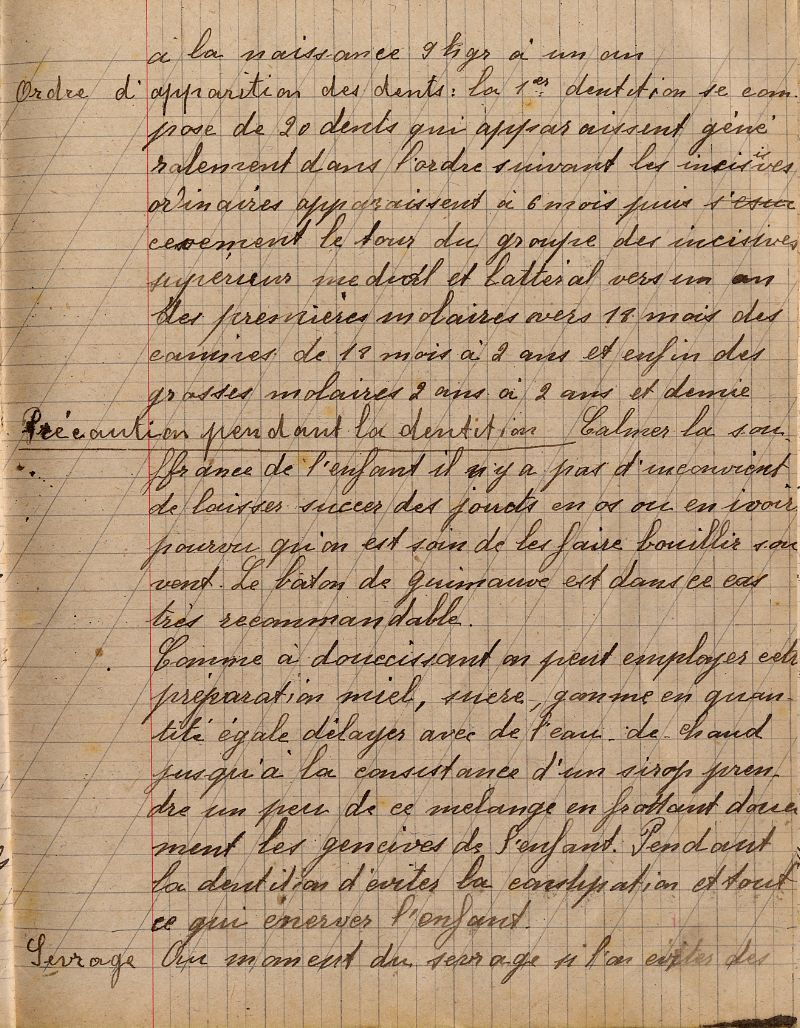 à la naissance 9 kgr à un an
Ordre d' apparition des dents : la 1er dentition se com-
pose de 20 dents qui apparaissent géné
ralement dans l'ordre suivant les incisives
ordinaires apparaissent à 6 mois puis s'esuc
cesvement le tour du groupe des incisives
supérieur et lattéral vers un an
des premières molaires vers 18 mois des
canines de 18 mois à 2 ans et enfin des
grosses molaires 2 ans à 2 ans et demie
Précaution pendant la dentition Calmer la sou-
ffrance de l'enfant il n y a pas d'inconvient
de laisser succer des jouets en os ou en ivoir
pourvu qu'on est soin de les faire bouillir sou
vent. Le bâton de guimauve est dans ce cas
très recommandable.
Comme à douccissant on peut employer cette
préparation miel, sucre, gomme en quan-
tité égale délayer avec de l'eau de chaud
jusqu'à la consistance d'un sirop pren-
dre un peu de ce melange en frottant douce
ment les gencives de l'enfant. Pendant
la dentition d'éviter la constipation et tout
ce qui énerver l'enfant.
Sevrage Au moment du sevrage si l'on évites des